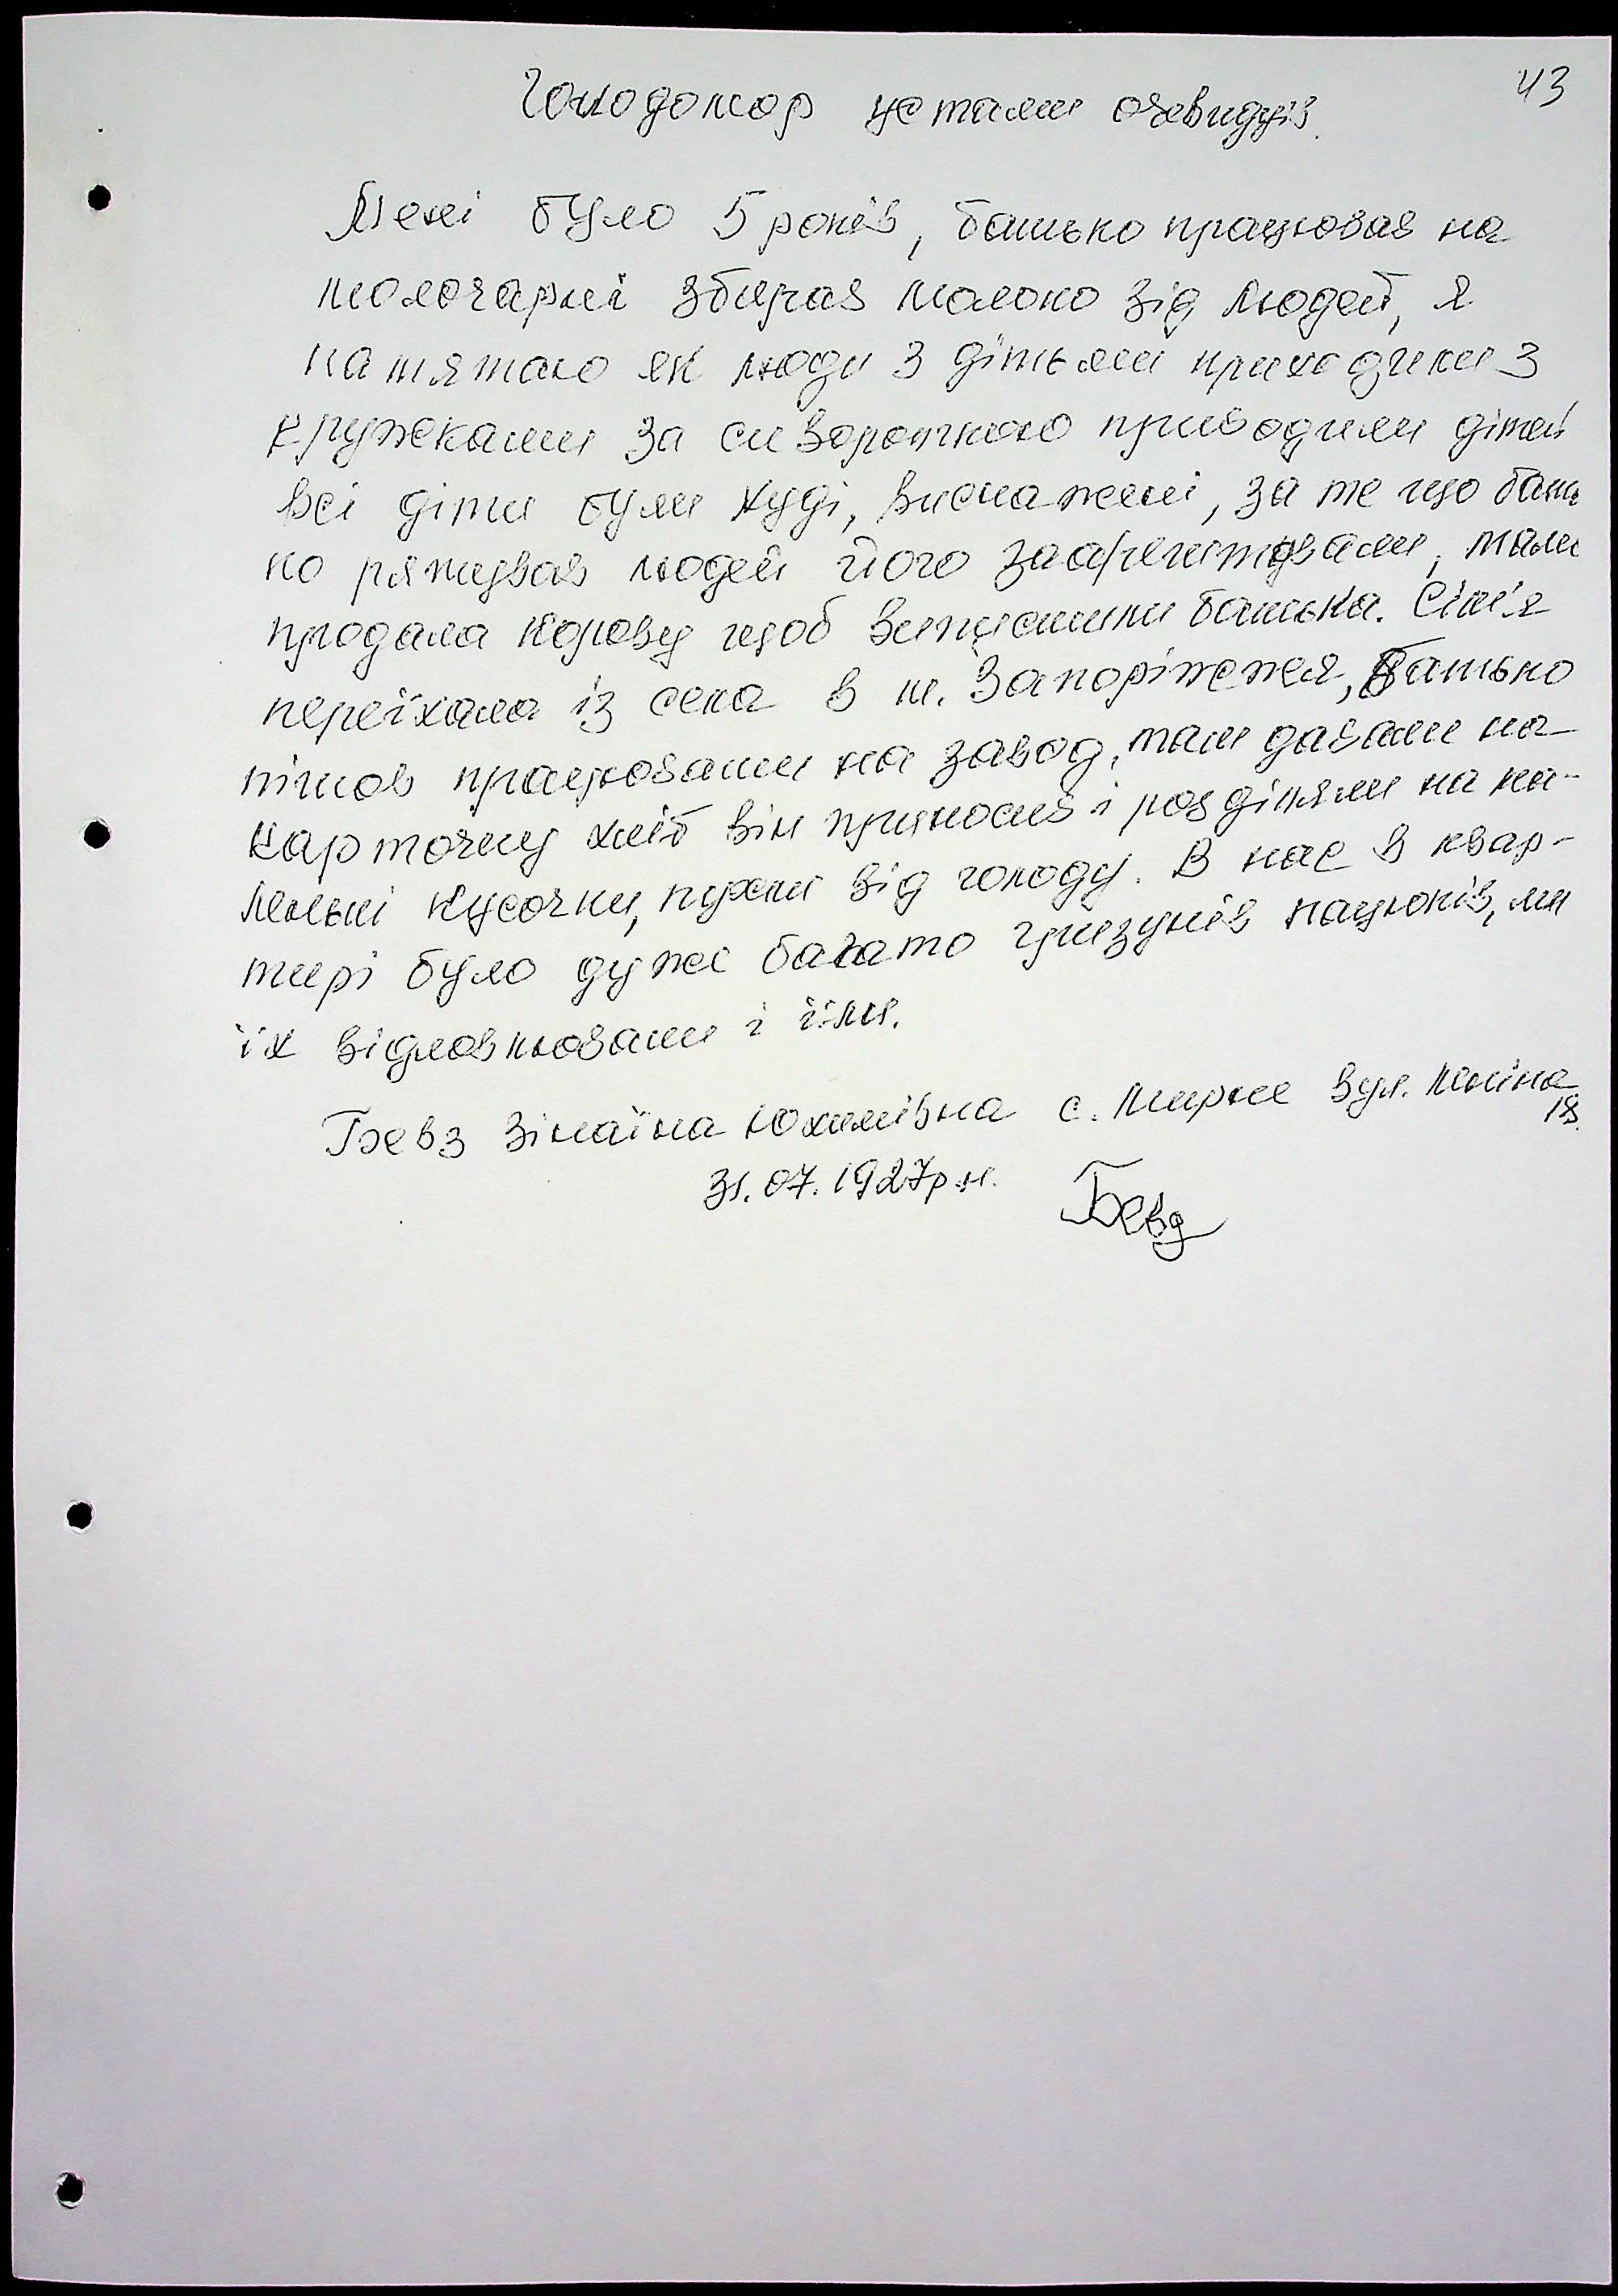 43
Голодомор устами очевидців.
Мені було 5 років, батько працював на
молочарні збирав молоко від людей, я
памятаю як люди з дітьми приходили з
кружками за сивороткою приводили дітей
всі діти були худі, виснажені, за те що бать
ко рятував людей його заарештували, мама
продала корову щоб випустили батька. Сім'я
переїхала із села в м. Запоріжжя, батько
пішов працювати на завод, там давали на
карточку хліб він приносив і розділяли на ма-
ленькі кусочки, пухли від голоду. В нас в квар-
тирі було дуже багато гризунів пацюків, ми
їх відловлювали і їли.
Бевз Зінаїна Юхимівна с. Мирне вул. Леніна
18.
31.07.1927р.н. Бевз